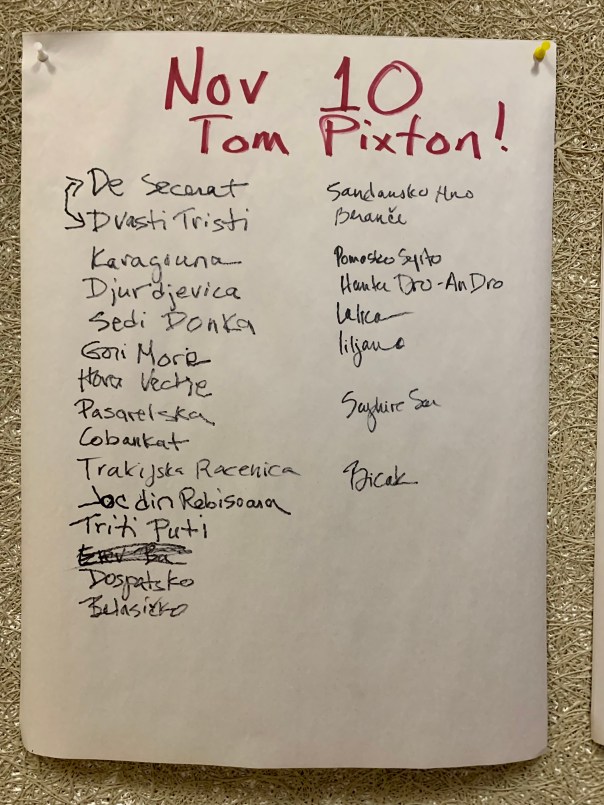 Nov 10
Tom Pixton!
De Secerat
Dvasti Tristi
Karagouna
Djurdjevica
Sedi Donka
Gori More
Hora Vectje
Pasarelska
Cobankat
Trakijska Racenica
Joc din Robisoara
Triti Puti
Erev Ba
Dospatsko
Belasicko
Sandansko Horo
Beranče
Pomosko
Hanter Dro-An Dro
Lalica
liljano
Bicak